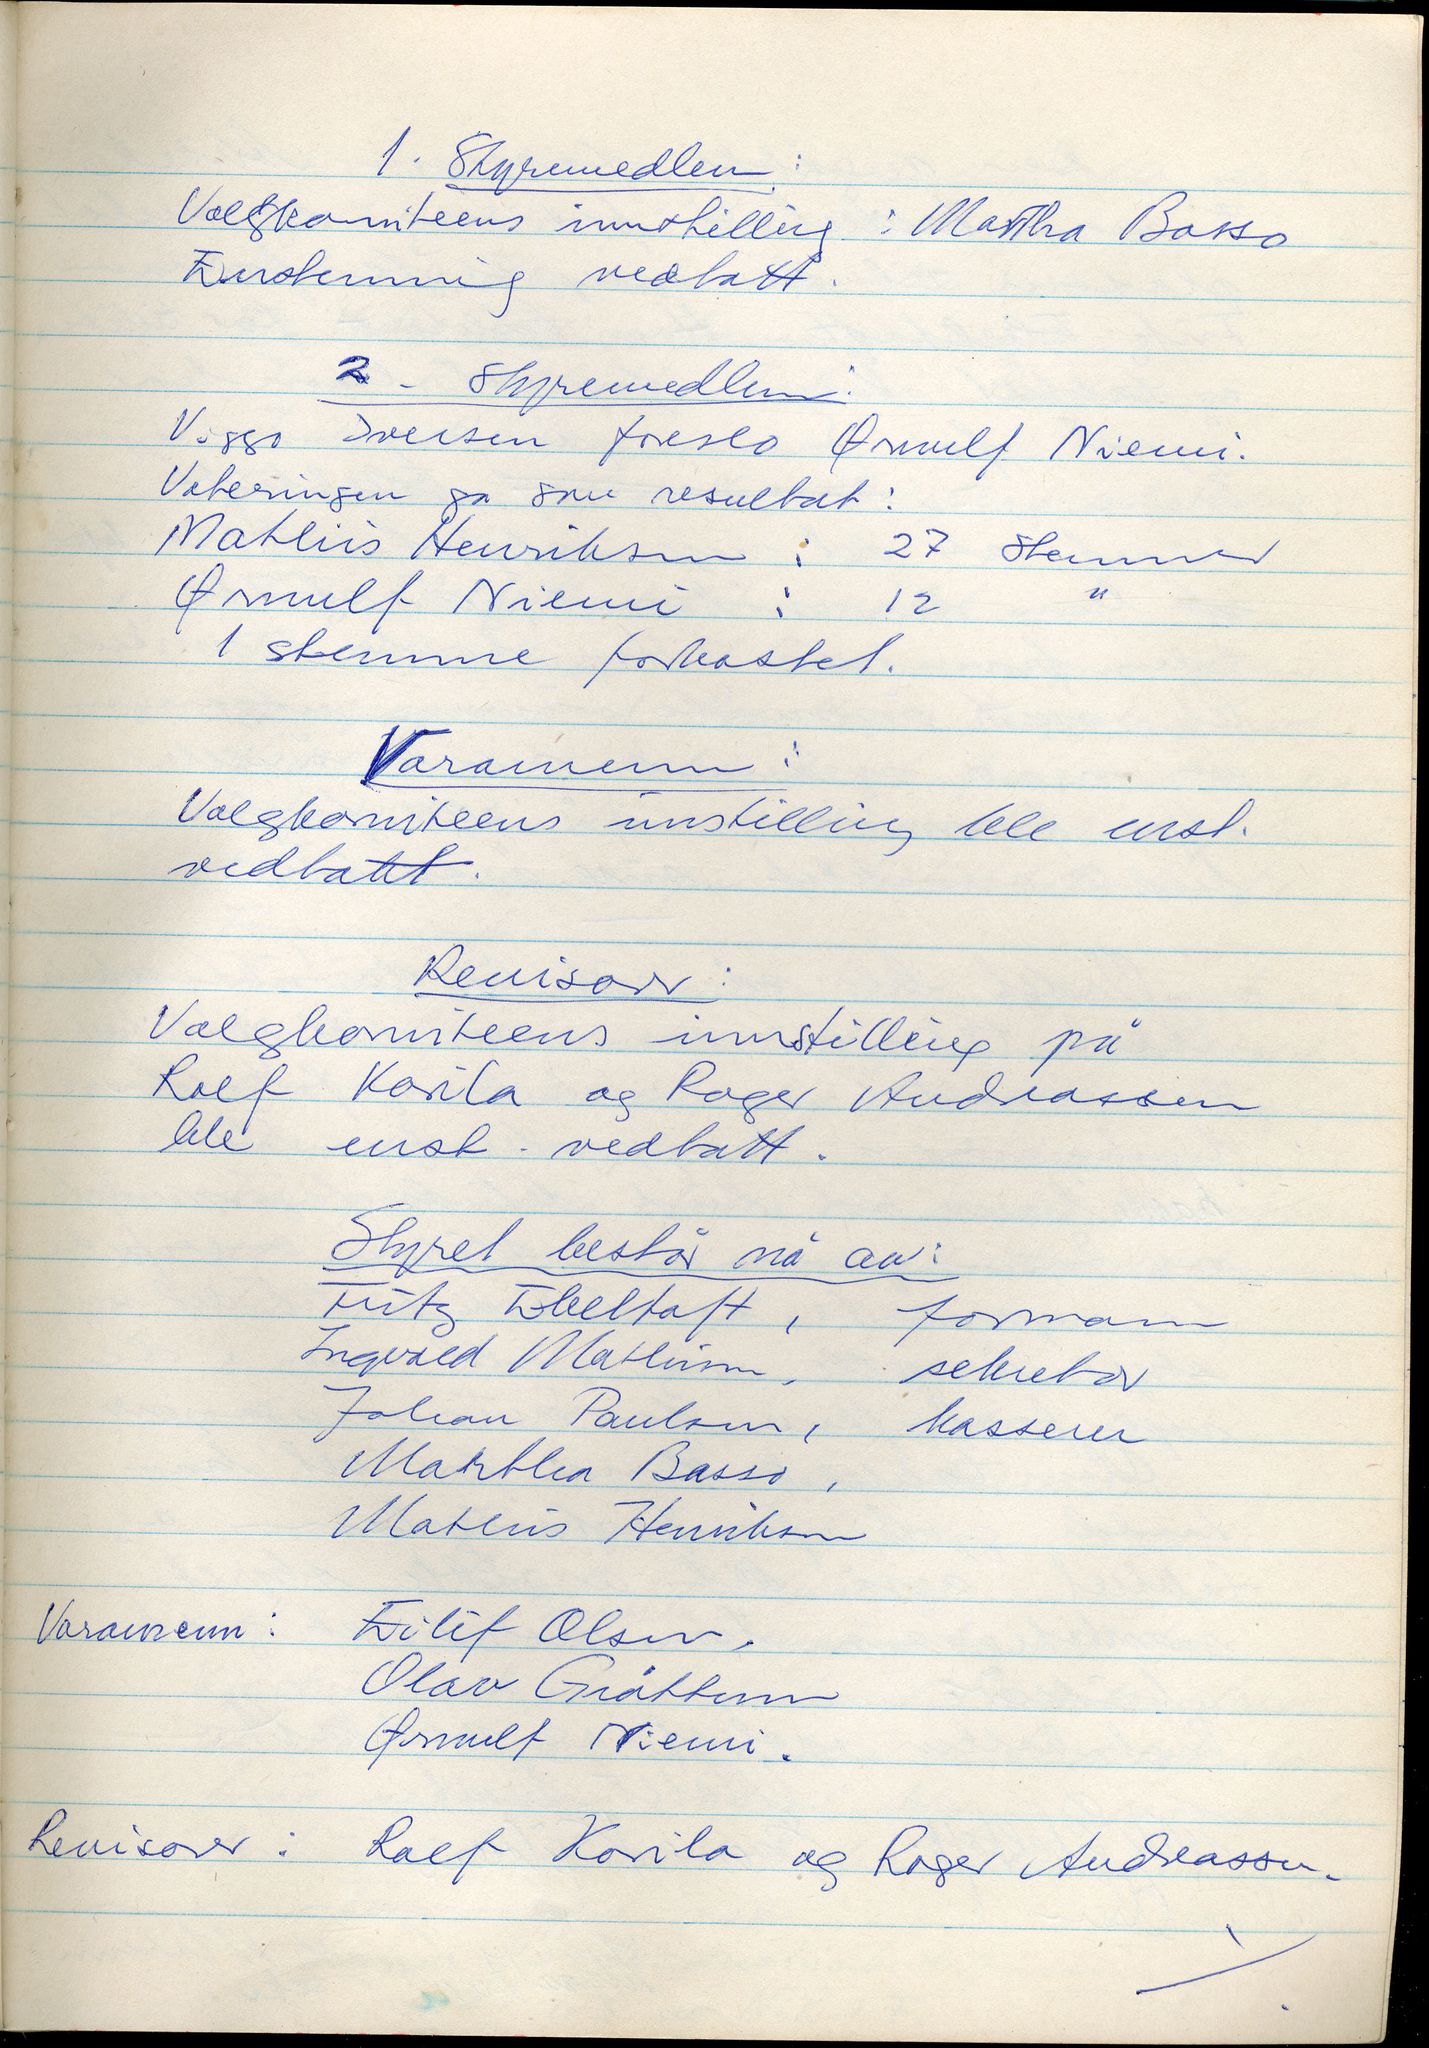 1. Styremedlem:
Valgkomiteens innstilling: Martha Basso
Enstemmig vedtatt.
2 - Styremedlem:
Viggo Iversen foreslo Ørnulf Niemi.
Voteringen ga som resultat:
Mathiis Henriksen : 27 stemmer
Ørnulf Niemi : 12 "
1 stemme forkastet.
Varamenn:
Valgkomiteens innstilling ble enst.
vedtatt.
Revisorer:
Valgkomiteens innstilling på
Rolf Korila og Roger Andreassen
ble enst. vedtatt.
Styret består nå av:
Fritz Ebeltoft, formann
Ingvald Mathisen, sekretær
Johan Paulsen, kasserer
Martha Basso,
Mathiis Henriksen
Varamenn: Eilif Olsen.
Olav Gråttum
Ørnulf Niemi.
Revisorer: Rolf Korila og Roger Andreassen.